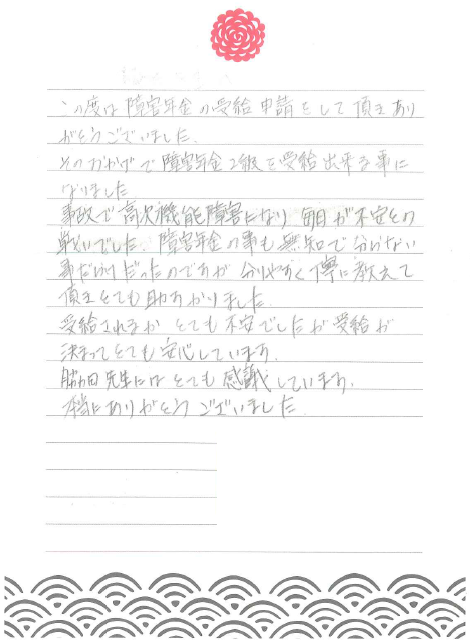 この度は障害年金の受給申請をして頂きあり
がとうございました。
そのおかげで障害年金2級を受給出来る事に
なりました
事故で高次機能障害になり 毎日が不安との
戦いでした。障害年金の事も無知で分からない
事だらけだったのですが 分りやすく丁寧に教えて
頂きとても助かりました。
受給されるか とても不安でしたが受給が
決まってとても安心しています。
勝田先生には とても感謝しています。
本当にありがとうございました。